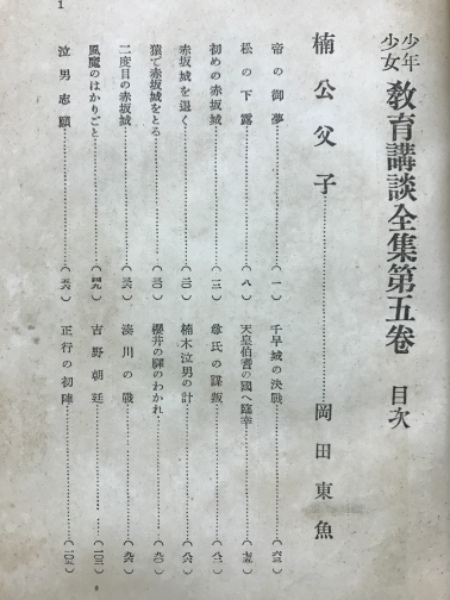 少年少女 教育講談全集第五卷 目次
楠公父子……岡田東魚
帝の御夢……(一)
松の下露……(八)
初めの赤坂城……(一三)
赤坂城を退く……(二〇)
猿で赤坂城をとる……(三〇)
二度目の赤坂城……(三六)
風魔のはかりごと……(四九)
泣男志願……(五六)
千早城の決戰……(六三)
天皇伯耆の國へ臨幸……(七五)
尊氏の謀叛……(八二)
楠木泣男の計……(八六)
櫻井の驛のわかれ……(九〇)
湊川の戰……(九六)
吉野朝廷……(一〇三)
正行の初陣……(一〇五)
1